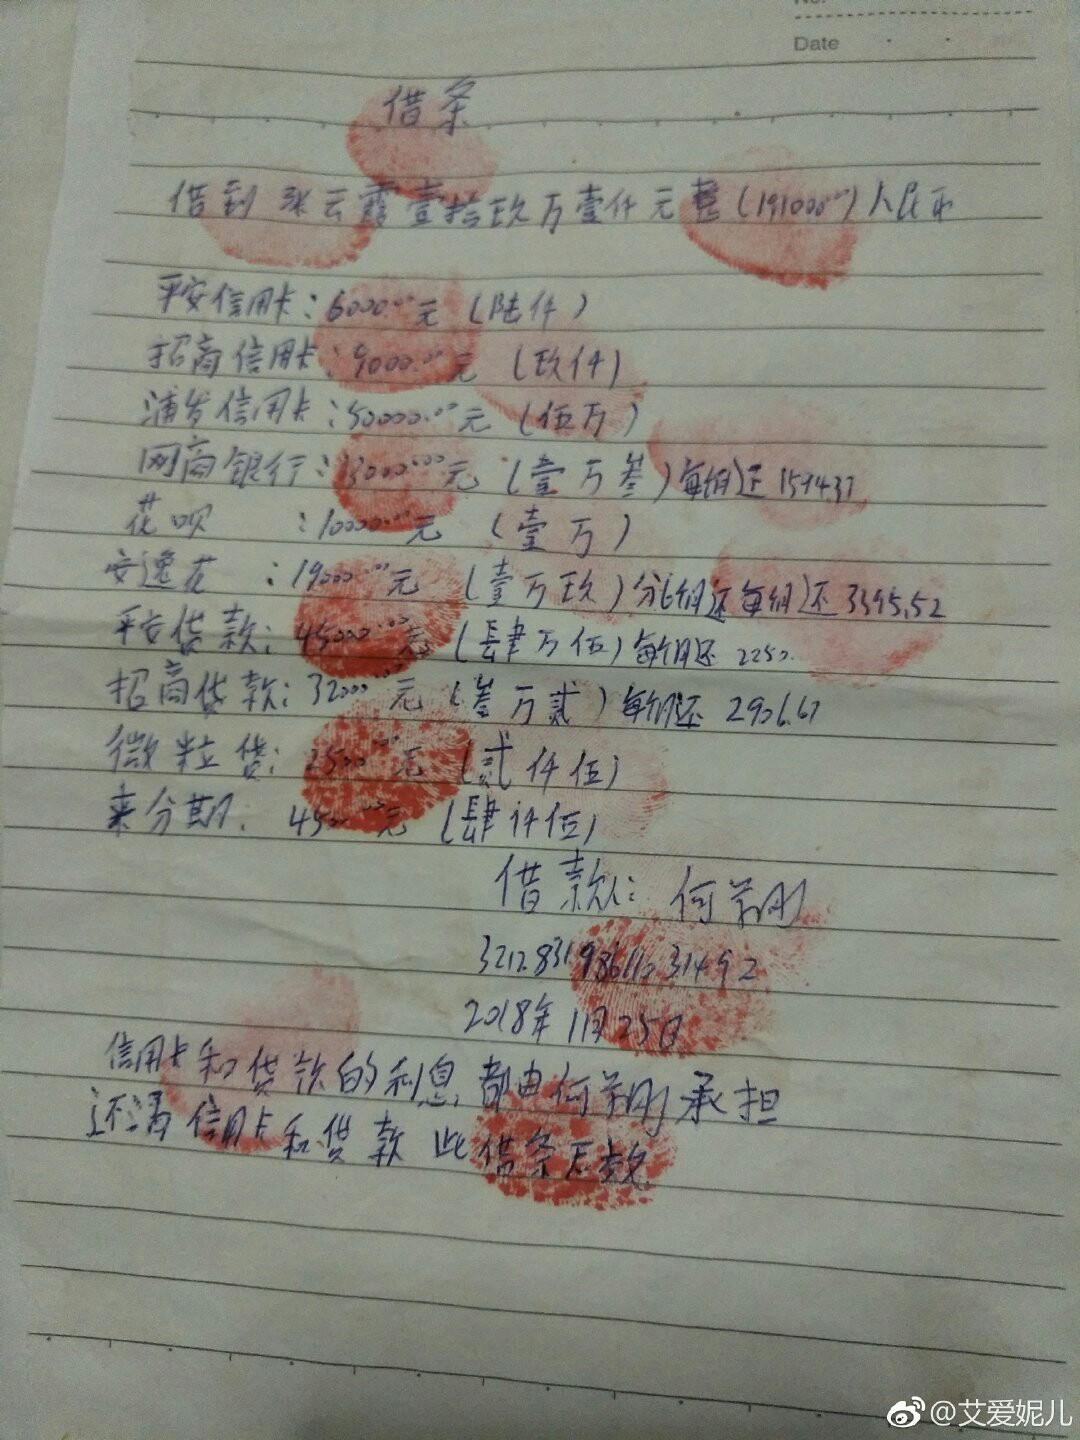 No.
Date
借条
借到 张云霞壹拾玖万壹仟元整(191000.00)人民币
平安信用卡:6000.00元(陆仟)
招商信用卡:9000.00元(玖仟)
浦发信用卡:50000.00元(伍万)
网商银行:13000.00元(壹万叁)每月还1594.37
花呗:10000.00元(壹万)
安逸花:19000.00元(壹万玖)分6月还每月还3395.52
平安贷款:45000.00元(肆万伍)每月还2250.
招商贷款:32000.00元(叁万贰)每月还2906.67
微粒贷:2500.00元(贰仟伍)
来分期:4500.00元(肆仟伍)
借款:何 刚
2018年11月25日
信用卡和贷款的利息都由何 刚承担
还清信用卡和贷款此借条无效
@艾爱妮儿